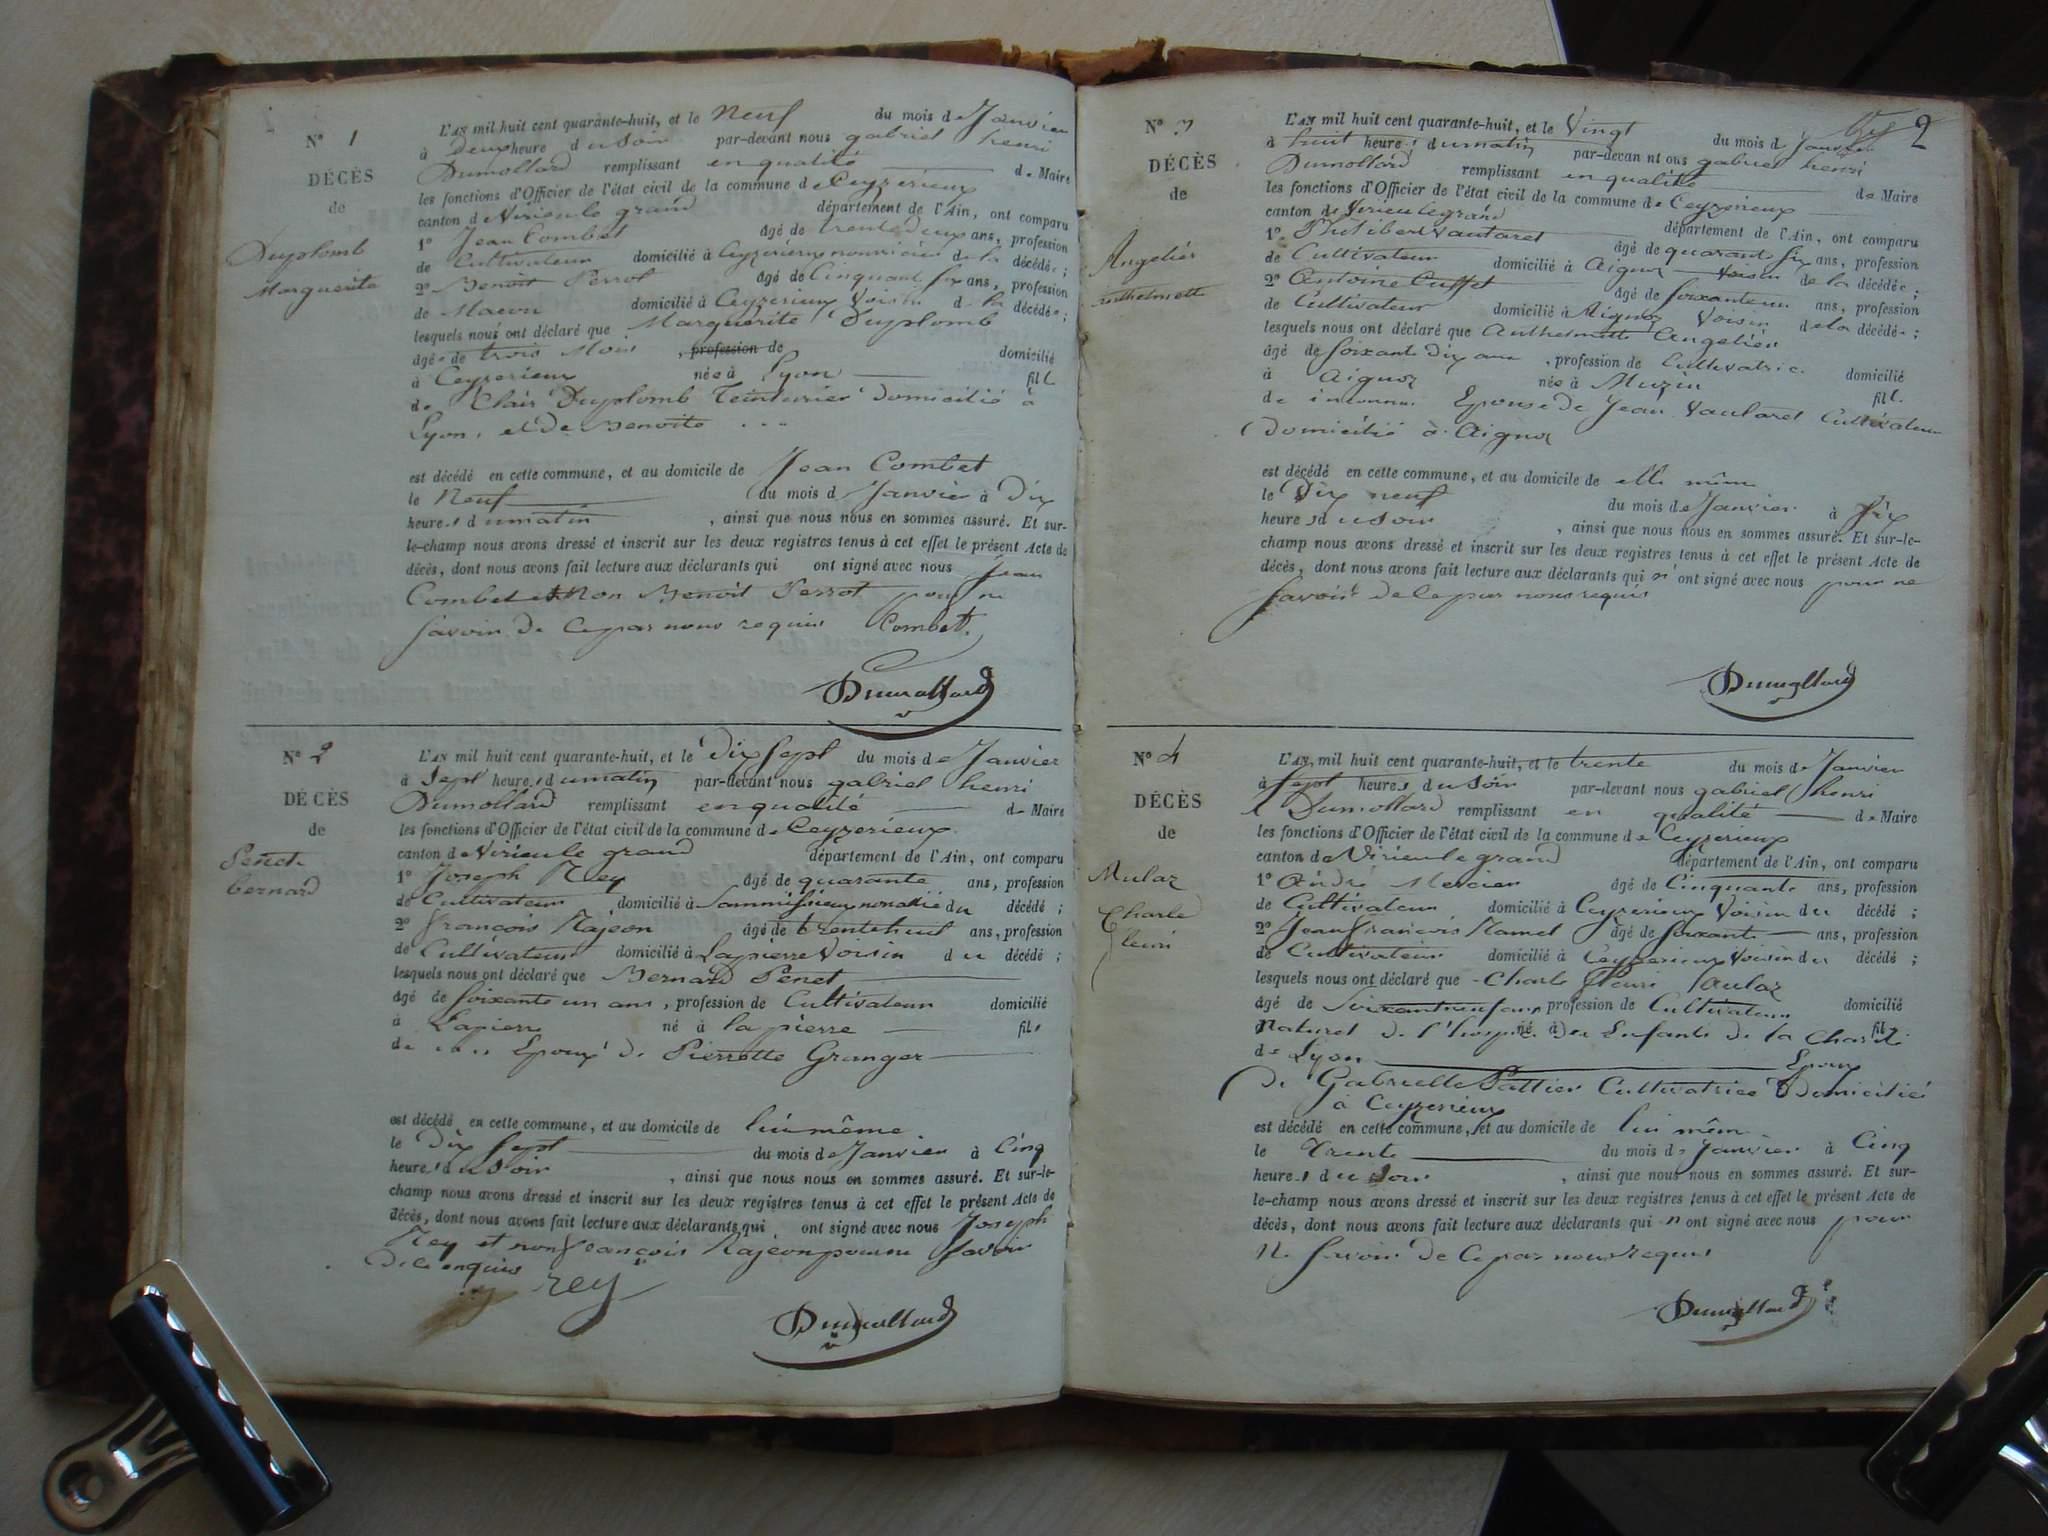 N° 1
DÉCÈS
de
Duplomb
Marguerite
L'AN mil huit cent quarante-huit, et le Neuf du mois de Janvier
à Deux heure du soir par-devant nous gabriel henri
Dumollard remplissant en qualité de Maire
les fonctions d'Officier de l'état civil de la commune de Ceyzerieux
canton de Virieu le grand département de l'Ain, ont comparu
1° Jean Combet âgé de trente deux ans, profession
de Cultivateur domicilié à Ceyzérieux nourricier de la décédée ;
2° Benoit Perrot âgé de Cinquante six ans, profession
de Macon domicilié à Ceyzerieux Voisin de la décédée ;
lesquels nous ont déclaré que Marguerite Duplomb
âgée de trois Mois , profession de domicilié
à Ceyzerieux née à Lyon fille
de Clair Duplomb Teinturier Domicilié à
Lyon, et de Benoite ...
est décédé en cette commune, et au domicile de Jean Combet
le Neuf du mois d Janvier à Dix
heures du matin , ainsi que nous nous en sommes assuré. Et sur-
le-champ nous avons dressé et inscrit sur les deux registres tenus à cet effet le présent Acte de
décès, dont nous avons fait lecture aux déclarants qui ont signé avec nous Jean
Combet et Non Benoit Perrot pour ne
savoir de ce par nous requis Combet
Dumollard
N° 2
DÉCÈS
de
Penet
bernard
L'AN mil huit cent quarante-huit, et le Dix sept du mois de Janvier
à Sept heures du matin par-devant nous gabriel henri
Dumollard remplissant en qualité de Maire
les fonctions d'Officier de l'état civil de la commune de Ceyzerieux
canton de Virieu le grand département de l'Ain, ont comparu
1° Joseph Rey âgé de quarante ans, profession
de Cultivateur domicilié à du décédé ;
2° françois Rajeon âgé de trente huit ans, profession
de Cultivateur domicilié à Lapierre Voisin du décédé ;
lesquels nous ont déclaré que Bernard Penet
âgé de soixante un ans , profession de Cultivateur domicilié
à Lapierre né à la pierre fils
de ... Epoux de Pierrette Granger
est décédé en cette commune, et au domicile de lui même
le Dix sept du mois de Janvier à Cinq
heures du soir , ainsi que nous nous en sommes assuré. Et sur-le-
champ nous avons dressé et inscrit sur les deux registres tenus à cet effet le présent Acte de
décès, dont nous avons fait lecture aux déclarants qui ont signé avec nous Joseph
Rey et non françois Rajeon pour ne savoir
de ce enquis
rey
Dumollard
2
N° 3
DÉCÈS
de
Angelier
anthelmette
L'AN mil huit cent quarante-huit, et le Vingt du mois d Janvier
à huit heures du matin par-devan nt ous gabriel henri
Dumollard remplissant en qualité de Maire
les fonctions d'Officier de l'état civil de la commune de Ceyzerieux
canton de Virieu le grand département de l'Ain, ont comparu
1° Philibert Vautaret âgé de quarante six ans, profession
de Cultivateur domicilié à Aignoz Voisin de la décédée ;
2° Antoine Cuffet âgé de soixante un ans, profession
de Cultivateur domicilié à Aignoz Voisin de la décédée ;
lesquels nous ont déclaré que Anthelmette Angelier
âgé de soixante dix ans , profession de Cultivatrice domicilié
à Aignoz née à Muzin fille
de inconnu Epouse de Jean Vautaret Cultivateur
Domicilié à Aignoz
est décédé en cette commune, et au domicile de elle même
le Dix neuf du mois de Janvier à six
heures du soir , ainsi que nous nous en sommes assuré. Et sur-le-
champ nous avons dressé et inscrit sur les deux registres tenus à cet effet le présent Acte de
décès, dont nous avons fait lecture aux déclarants qui n'ont signé avec nous pour ne
savoir de ce par nous requis
Dumollard
N° 4
DÉCÈS
de
Mulaz
Charle
fleuri
L'AN, mil huit cent quarante-huit, et le trente du mois de Janvier
à sept heures du soir par-devant nous gabriel henri
Dumollard remplissant en qualité de Maire
les fonctions d'Officier de l'état civil de la commune de Ceyzerieux
canton de Virieu le grand département de l'Ain, ont comparu
1° André Mercier âgé de Cinquante ans, profession
de Cultivateur domicilié à Ceyzerieux Voisin du décédé ;
2° Jean françois Ramel âgé de soixante ans, profession
de Cultivateur domicilié à Ceyzerieux Voisin du décédé ;
lesquels nous ont déclaré que Charle fleuri
âgé de soixante neuf ans profession de Cultivateur domicilié
Naturel de l'hospice né à des Enfants de la Charité fils
de Lyon Epoux
de Gabrielle Cultivatrice Domicilié
à Ceyzerieux
est décédé en cette commune, et au domicile de lui même
le Trente du mois de Janvier à Cinq
heures du soir , ainsi que nous nous en sommes assuré. Et sur-
le-champ nous avons dressé et inscrit sur les deux registres tenus à cet effet le présent Acte de
décès, dont nous avons fait lecture aux déclarants qui n ont signé avec nous pour
Ne savoir de ce par nous requis
Dumollard